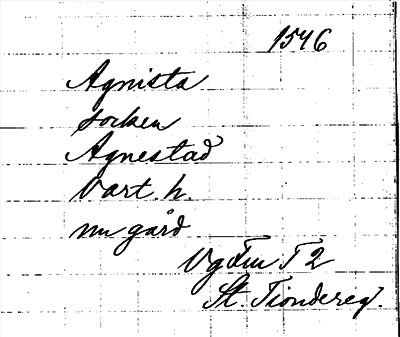 1546
Agnista
socken
Agnestad
Vart h.
nu gård
Vg Fru T 2
St. Tiondereg.